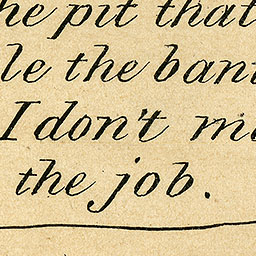 he pit that
le the bant
I don't mi
the job.